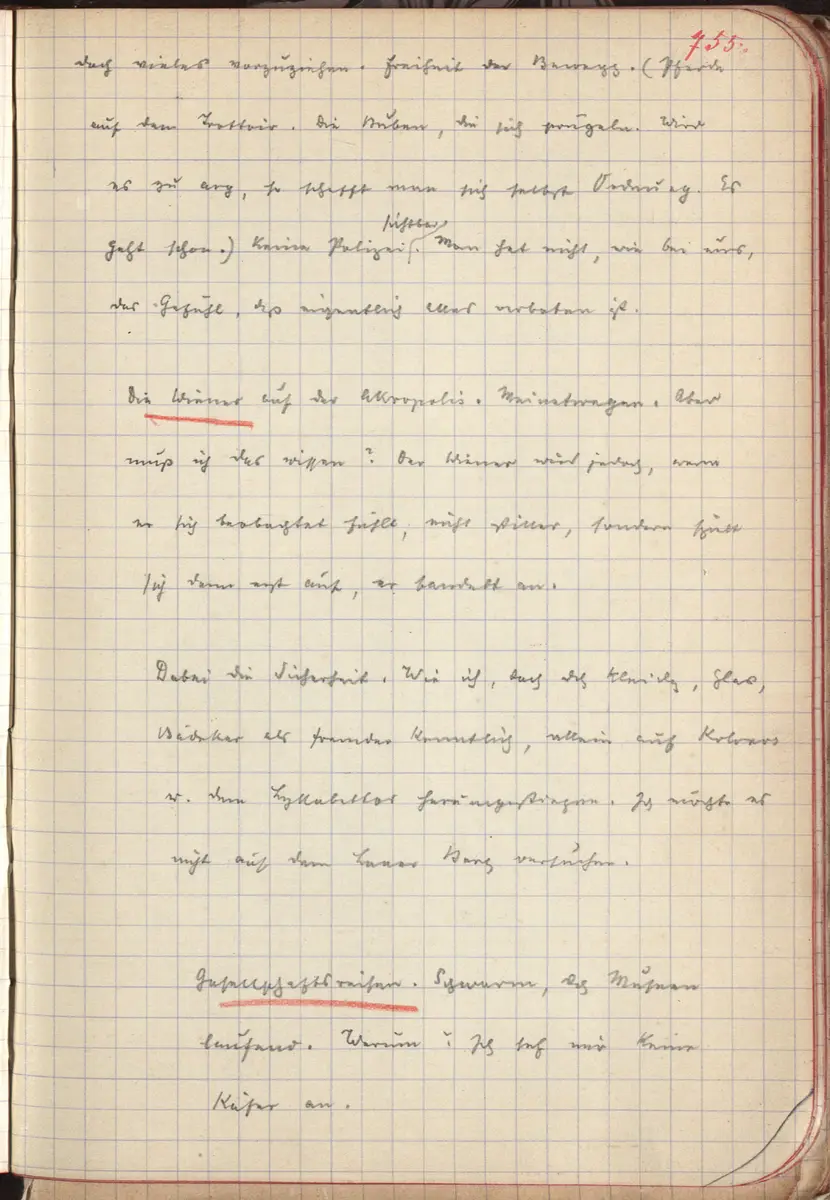 755.
doch vieles vorzuziehen. Freiheit der Bewegg. (Pferde
auf dem Trottoir. Die Buben, die sich prügeln. Wird
es zu arg, so schafft man sich selbst Ordnung. Es
sichtbar
geht schon.) Keine Polizei. Man hat nicht, wie bei uns,
das Gefühl, daß eigentlich alles verboten ist.
Die Wiener auf der Akropolis. Meinetwegen. Aber
muß ich das wissen? Der Wiener wird jedoch, wenn
er sich beobachtet fühlt, nicht stiller, sondern spielt
sich dann erst auf, er bandelt an.
Dabei die Sicherheit. Wie ich, doch dch Kleidg, Glas,
Bädeker als Fremder kenntlich, allein auf Kolonos
u. dem Lykabettos herumgestiegen. Ich möchte es
nicht auf dem Laaer Berg versuchen.
Gesellschaftsreisen. Schwarm, dch Museen
laufend. Warum? Ich seh mir keine
Käfer an.